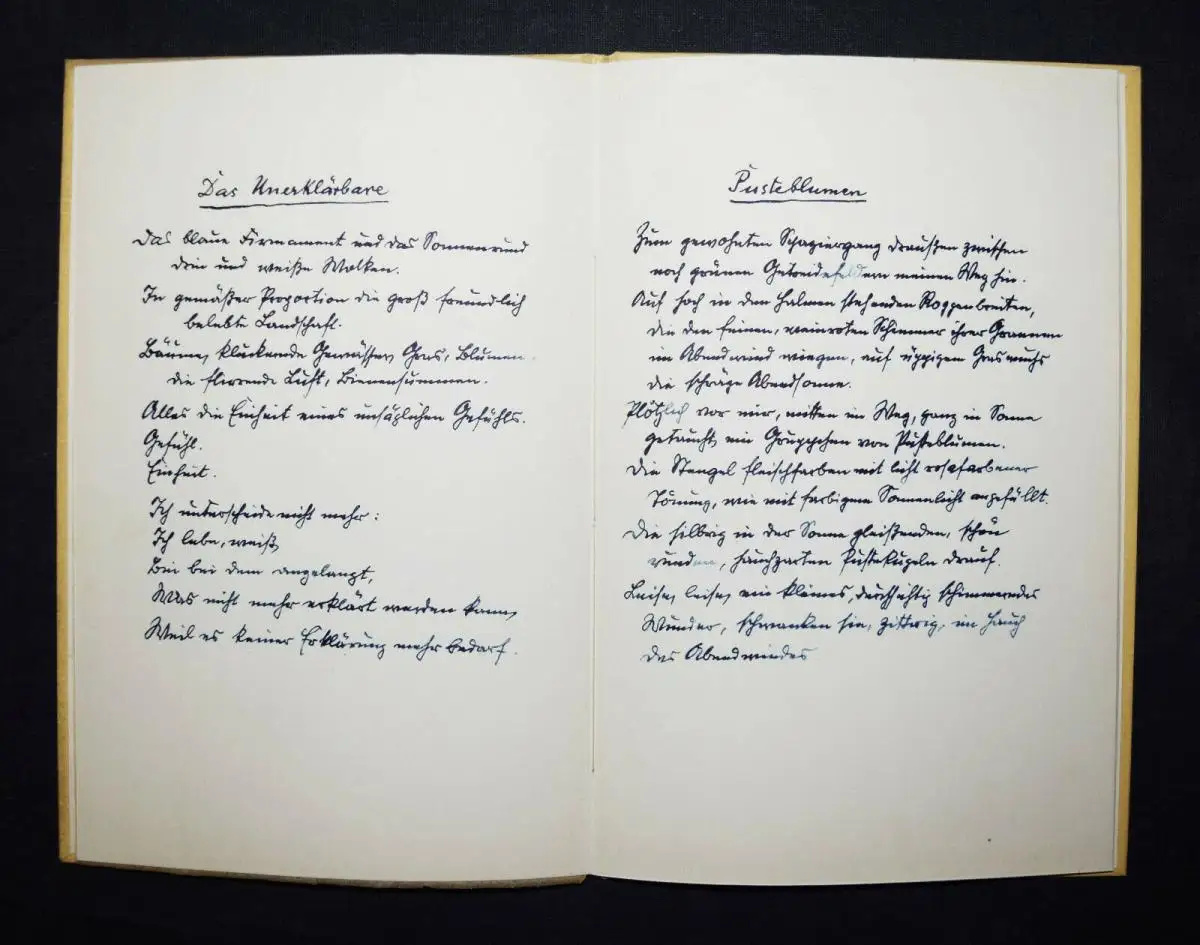 Das Unerklärbare
Das blaue Firmament und das Sonnenrund
drin und weiße Wolken.
In gemäßer Proportion die groß freundlich
belebte Landschaft.
Bäume, kluckernde Gewässer, Gras, Blumen.
die flirrende Luft, Bienensummen.
Alles die Einheit eines unsäglichen Gefühls.
Gefühl.
Einheit.
Ich unterscheide nicht mehr:
Ich lebe, weiß,
Bin bei dem angelangt,
Was nicht mehr erklärt werden kann,
Weil es keiner Erklärung mehr bedarf.
Pusteblumen
Zum gewohnten Spaziergang draußen zwischen
noch grünen Getreidefeldern meinen Weg hin.
Auf hoch in den Halmen stehenden Roggenbreiten,
die den feinen, weinroten Schimmer ihrer Grannen
im Abendwind wiegen, auf üppigem Graswuchs
die schräge Abendsonne.
Plötzlich vor mir, mitten im Weg, ganz in Sonne
getaucht, ein Grüppchen von Pusteblumen.
Die Stengel fleischfarben mit licht rosafarbener
Tönung, wie mit farbigem Sonnenlicht angefüllt.
Die silbrig in der Sonne gleißenden, schön
runden, hauchzarten Pustekugeln drauf.
Leise, leise, ein kleines, durchsichtig schimmerndes
Wunder, schwanken sie, zittrig, im Hauch
des Abendwindes